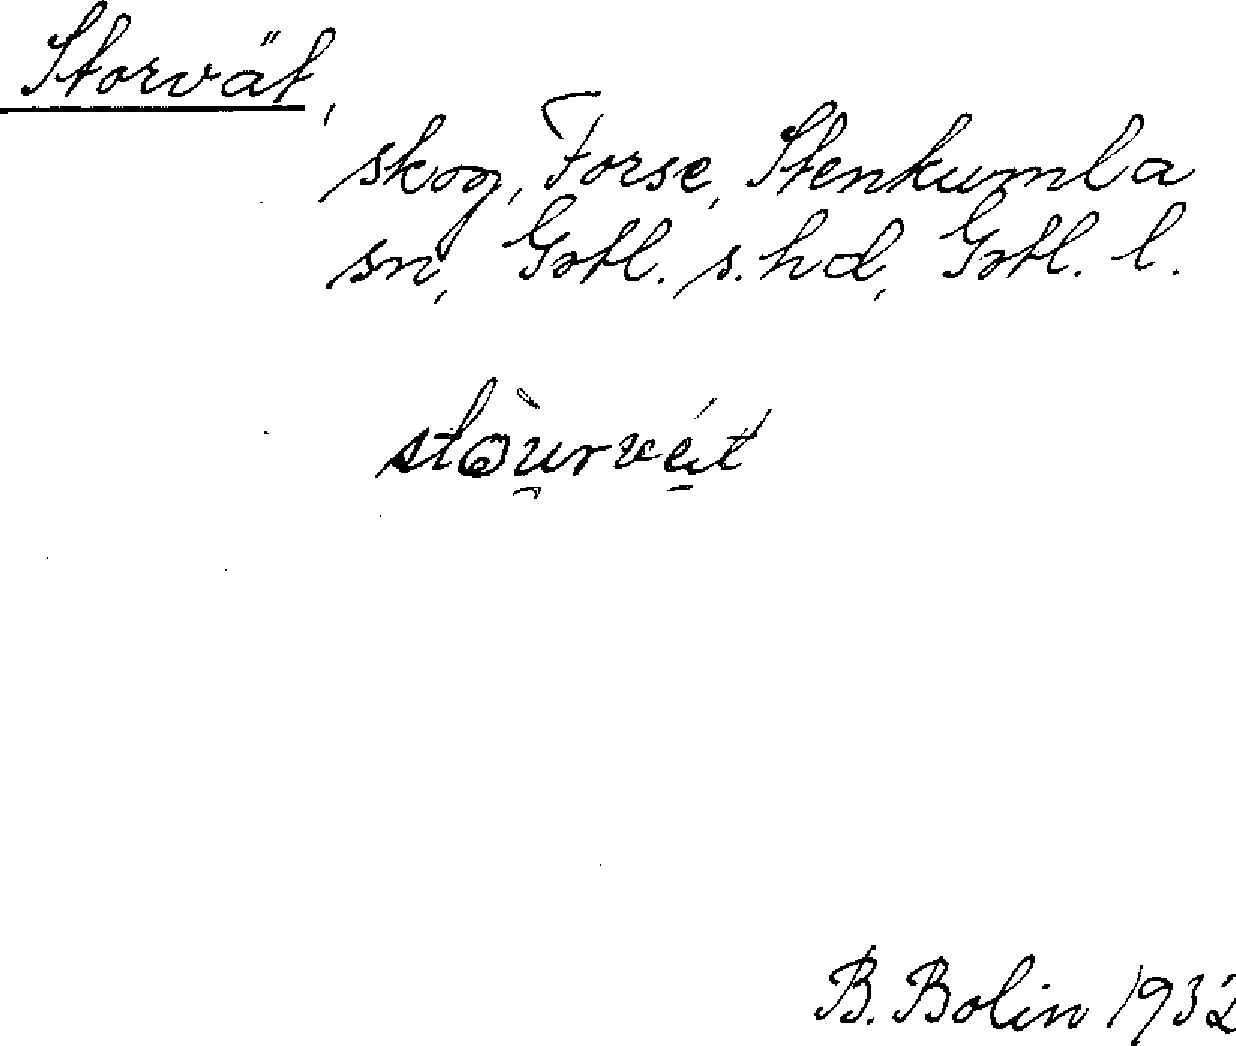 Storvät,
skog, Forse, Stenkumla
sn, Gotl. s. hd, Gotl. l.
stòurvét
B. Bolin 1932